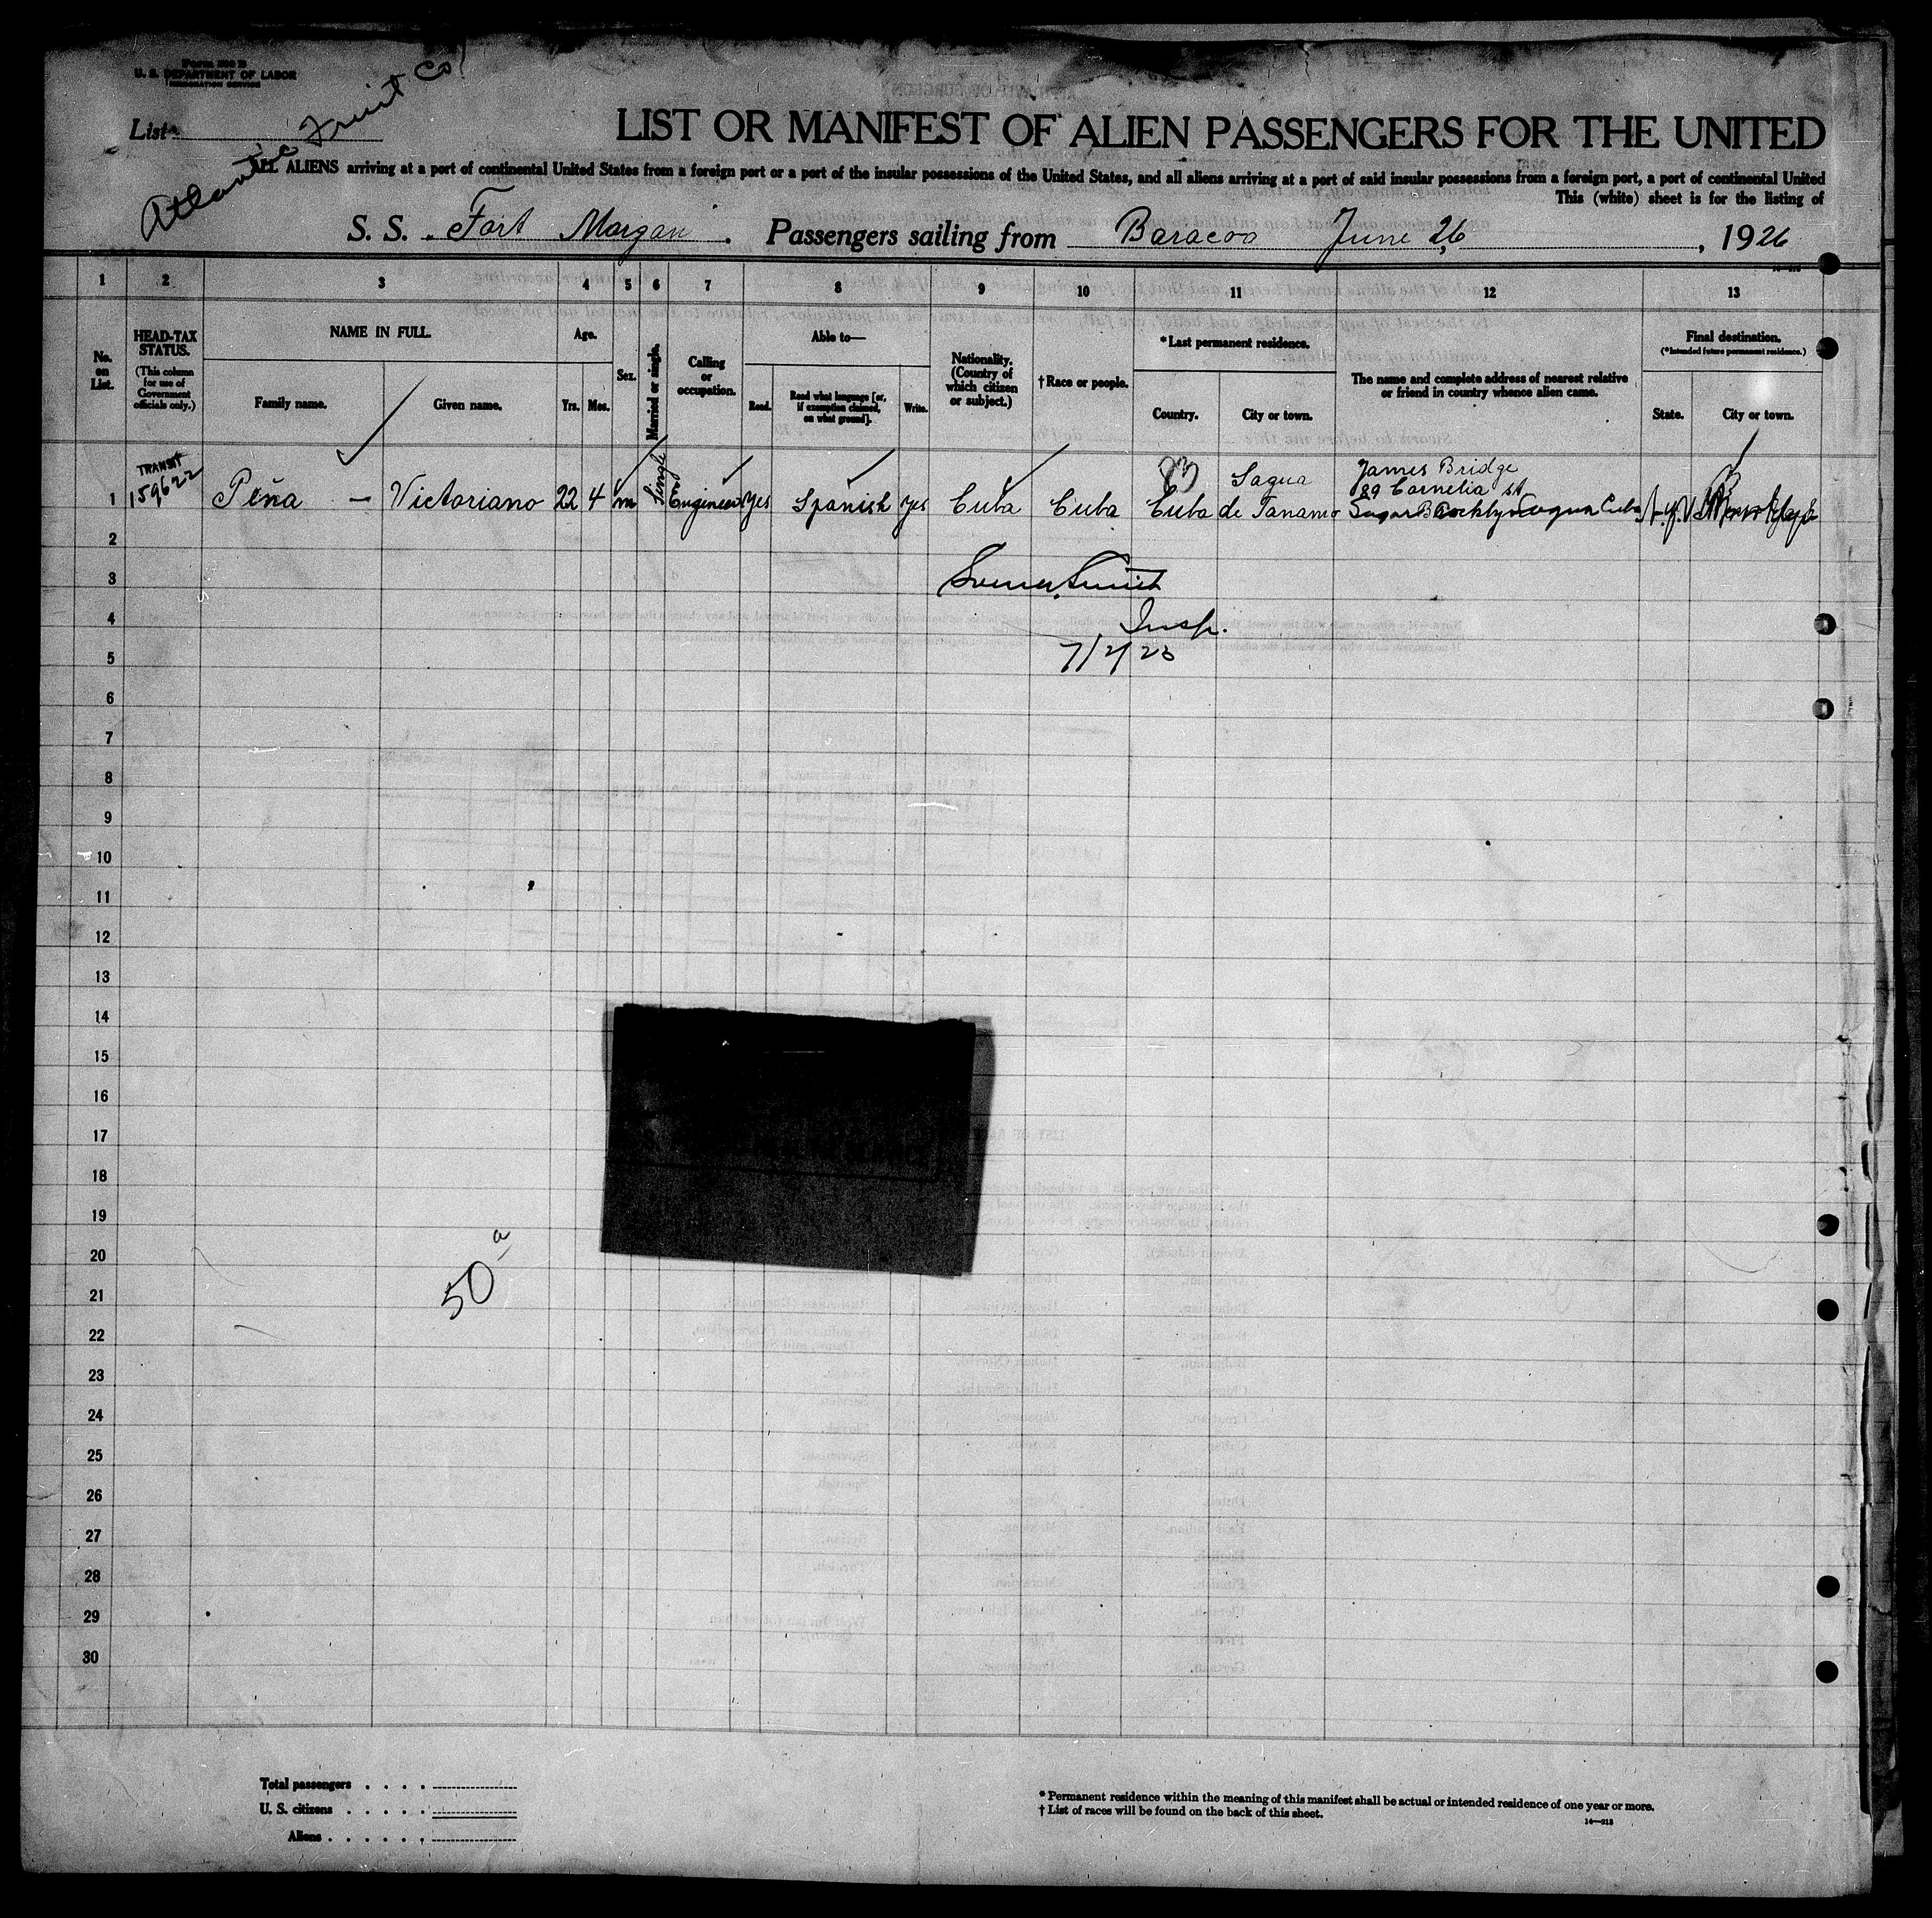 Form 500 B
U. S. DEPARTMENT OF LABOR
IMMIGRATION SERVICE
List
Atlantic Fruit Co
LIST OR MANIFEST OF ALIEN PASSENGERS FOR THE UNITED
ALL ALIENS arriving at a port of continental United States from a foreign port or a port of the insular possessions of the United States, and all aliens arriving at a port of said insular possessions from a foreign port, a port of continental United
This (white) sheet is for the listing of
S. S. Fort Morgan. Passengers sailing from Baracoa June 26, 1926
1 2 3 4 5 6 7 8 9 10 11 12 13
No. on List.
HEAD-TAX STATUS.
(This column for use of Government officials only.)
NAME IN FULL.
Family name.
Given name.
Age.
Yrs. Mos.
Sex.
Married or single.
Calling or occupation.
Able to—
Read.
Read what language [or, if exemption claimed, on what ground].
Write.
Nationality. (Country of which citizen or subject.)
† Race or people.
*Last permanent residence.
Country.
City or town.
The name and complete address of nearest relative or friend in country whence alien came.
Final destination.
(*Intended future permanent residence.)
State.
City or town.
TRANSIT
159622
1 Peña - Victoriano 22 4 m Single Engineer yes Spanish yes Cuba Cuba Cuba Sagua de Tanamo
James Bridge
89 Cornelia st
Brooklyn
N.Y.
2
3
4 Insp.
5
6
7
8
9
10
11
12
13
14
15
16
17
18
19
20
50 a
21
22
23
24
25
26
27
28
29
30
Total passengers . . . .
U. S. citizens . . . . .
Aliens . . . . . .
* Permanent residence within the meaning of this manifest shall be actual or intended residence of one year or more.
† List of races will be found on the back of this sheet.
14—213